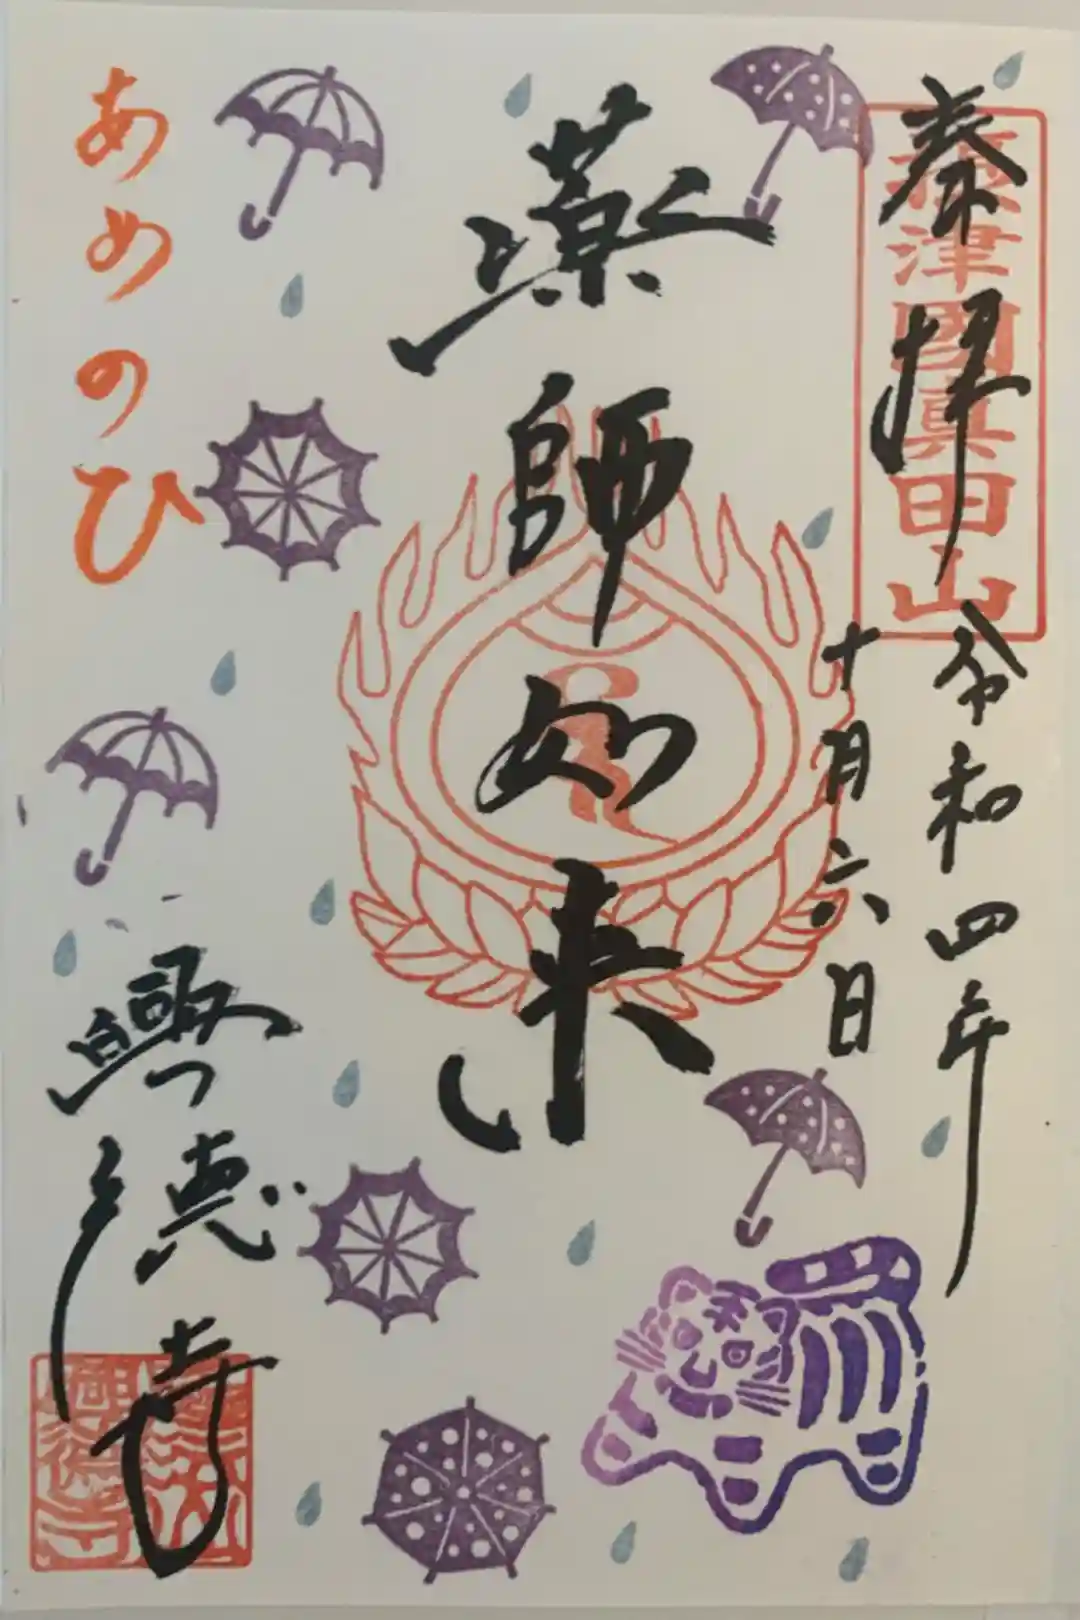 奉拝
攝津國眞田山
令和四年
十月六日
薬師如来
あめのひ
興徳寺